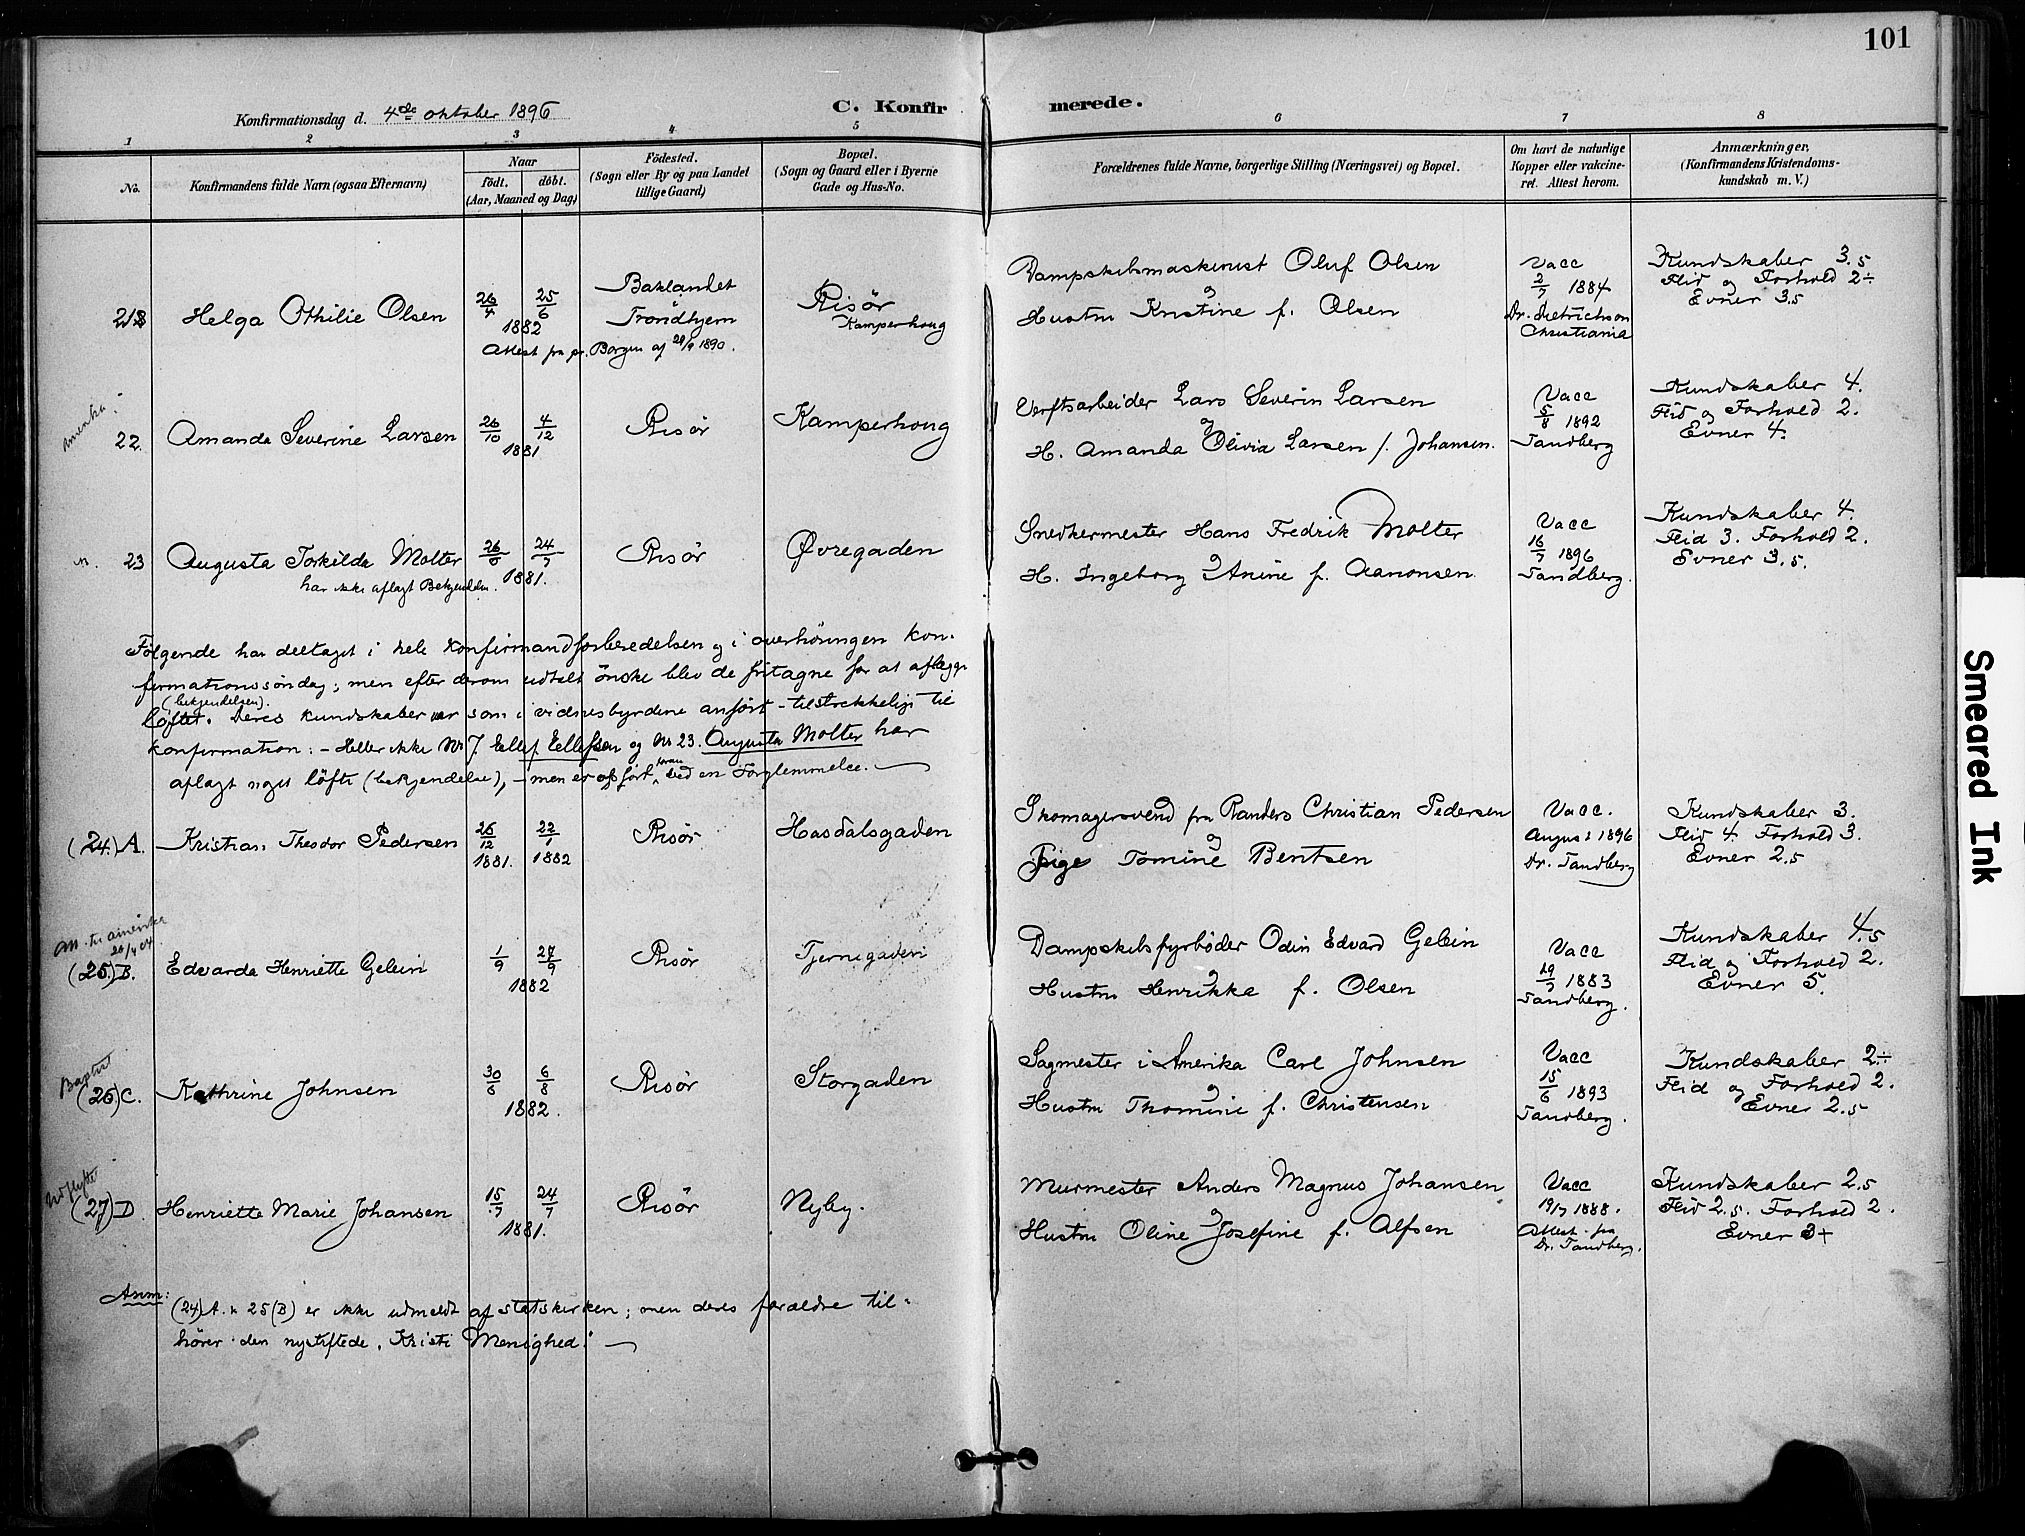 101
C. Konfirmerede.
Konfirmationsdag d. 4de oktober 1896
1 2 3 4 5 6 7 8
No.
Konfirmandens fulde Navn (ogsaa Efternavn)
Naar
födt. döbt.
(Aar, Maaned og Dag)
Födested.
(Sogn eller By og paa Landet
tillige Gaard)
Bopæl.
(Sogn og Gaard eller i Byerne
Gade og Hus-No.
Forældrenes fulde Navne, borgerlige Stilling (Næringsvei) og Bopæl.
Om havt de naturlige
Kopper eller vakcine-
ret. Attest herom.
Anmærkninger.
(Konfirmandens Kristendoms-
kundskab m. V.)
Helga Othilie Olsen
26/4 25/6
1882
Baklandet
Trondhjem
Attest fra pr. Borgen af 28/9 1890.
Risör
Kamperhoug
Dampskibsmaskinist Oluf Olsen
og
Hustru Kristine f. Olsen
Vacc
2/7 1884
Dr. Dietrichson
Christiania
Kundskaber 3.5
Flid og Forhold 2÷
Evner 3.5
22. Amanda Severine Larsen
26/10 4/12
1881
Risör
Kamperhoug
Verftsarbeider Lars Severin Larsen
og
H. Amanda Olivia Larsen f. Johansen.
Vacc
5/8 1892
Sandberg
Kundskaber 4.
Flid og Forhold 2.
Evner 4.
23 Augusta Torkilda Molter
har ikke aflagt Bekjendelse.
26/6 24/7
1881.
Risör
Øvregaden
Snedkermester Hans Fredrik Molter
og
H. Ingeborg Anine f. Aanonsen.
Vacc
16/7 1896
Sandberg.
Kundskaber 4.
Flid 3. Forhold 2.
Evner 3.5.
Følgende har deltaget i hele Konfirmandforberedelsen og i overhöringen kon-
firmationssöndag; men efter derom udtalt önske blev de fritagne for at aflægge
(bekjendelsen).
löftet. Deres kundskaber var som i vidnesbyrdene anfört - tilstrekkelig til
konfirmation: - Heller ikke Nr 7. Ellef Ellefsen og Nr 23. Augusta Molter har
aflagt noget löfte (bekjendelse), - men er opfört foran ved en Forglemmelse.
(24.) A. Kristian Theodor Pedersen
26/12 22/1
1881. 1882
Risör
Hasdalsgaden
Skomagersvend fra Randers Christian Pedersen
og
Pige Tomine Bentsen
Vacc.
August 1896
Dr. Sandberg
Kundskaber 3.
Flid 4. Forhold 3.
Evner 2.5
(25.) B. Edvarda Henriette Gelein
1/9 27/9
1882
Risör
Tjernegaden
Dampskibsfyrböder Odin Edvard Gelein
og
Hustru Henrikka f. Olsen
Vacc
19/7 1883
Sandberg.
Kundskaber 4.5
Flid og Forhold 2.
Evner 5.
Baptist
(26) C. Kathrine Johnsen
30/6 6/8
1882.
Risör
Storgaden
Sagmester i Amerika Carl Johnsen
og
Hustru Thomine f. Christensen
Vacc
15/6 1893
Sandberg.
Kundskaber 2÷
Flid og Forhold 2.
Evner 2.5
Udflyttet
(27) D. Henriette Marie Johansen
15/7 24/7
1881.
Risör
Nyby.
Murmester Anders Magnus Johansen
og
Hustru Oline Josefine f. Alfsen
Vacc
19/7 1888.
Attest fra
Dr. Sandberg.
Kundskaber 2.5
Flid 2.5. Forhold 2.
Evner 3+
Anm: (24) A. & 25 (B) er ikke udmeldt af statskirken; men deres forældre til-
hörer den nystiftede "Kristi Menighed".
Smeared Ink